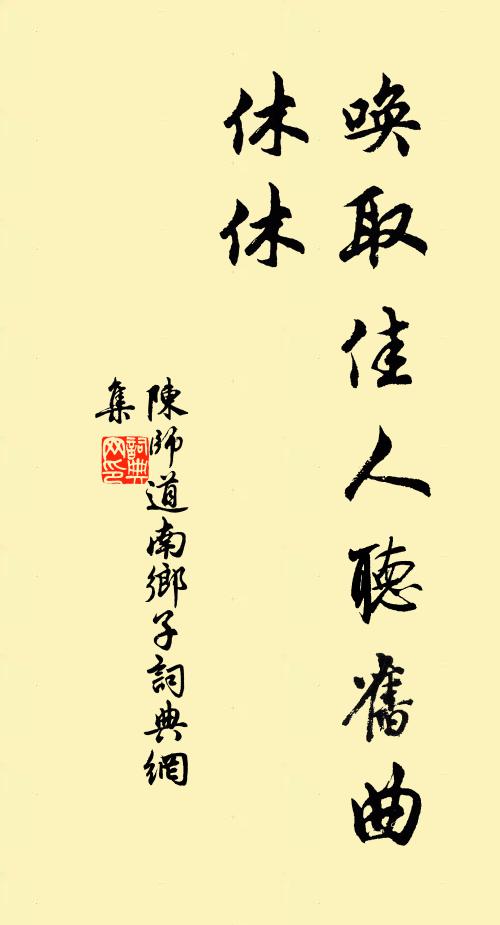 喚取佳人聽舊曲
休休
陳師道南鄉子詞典網
集
詞典网印